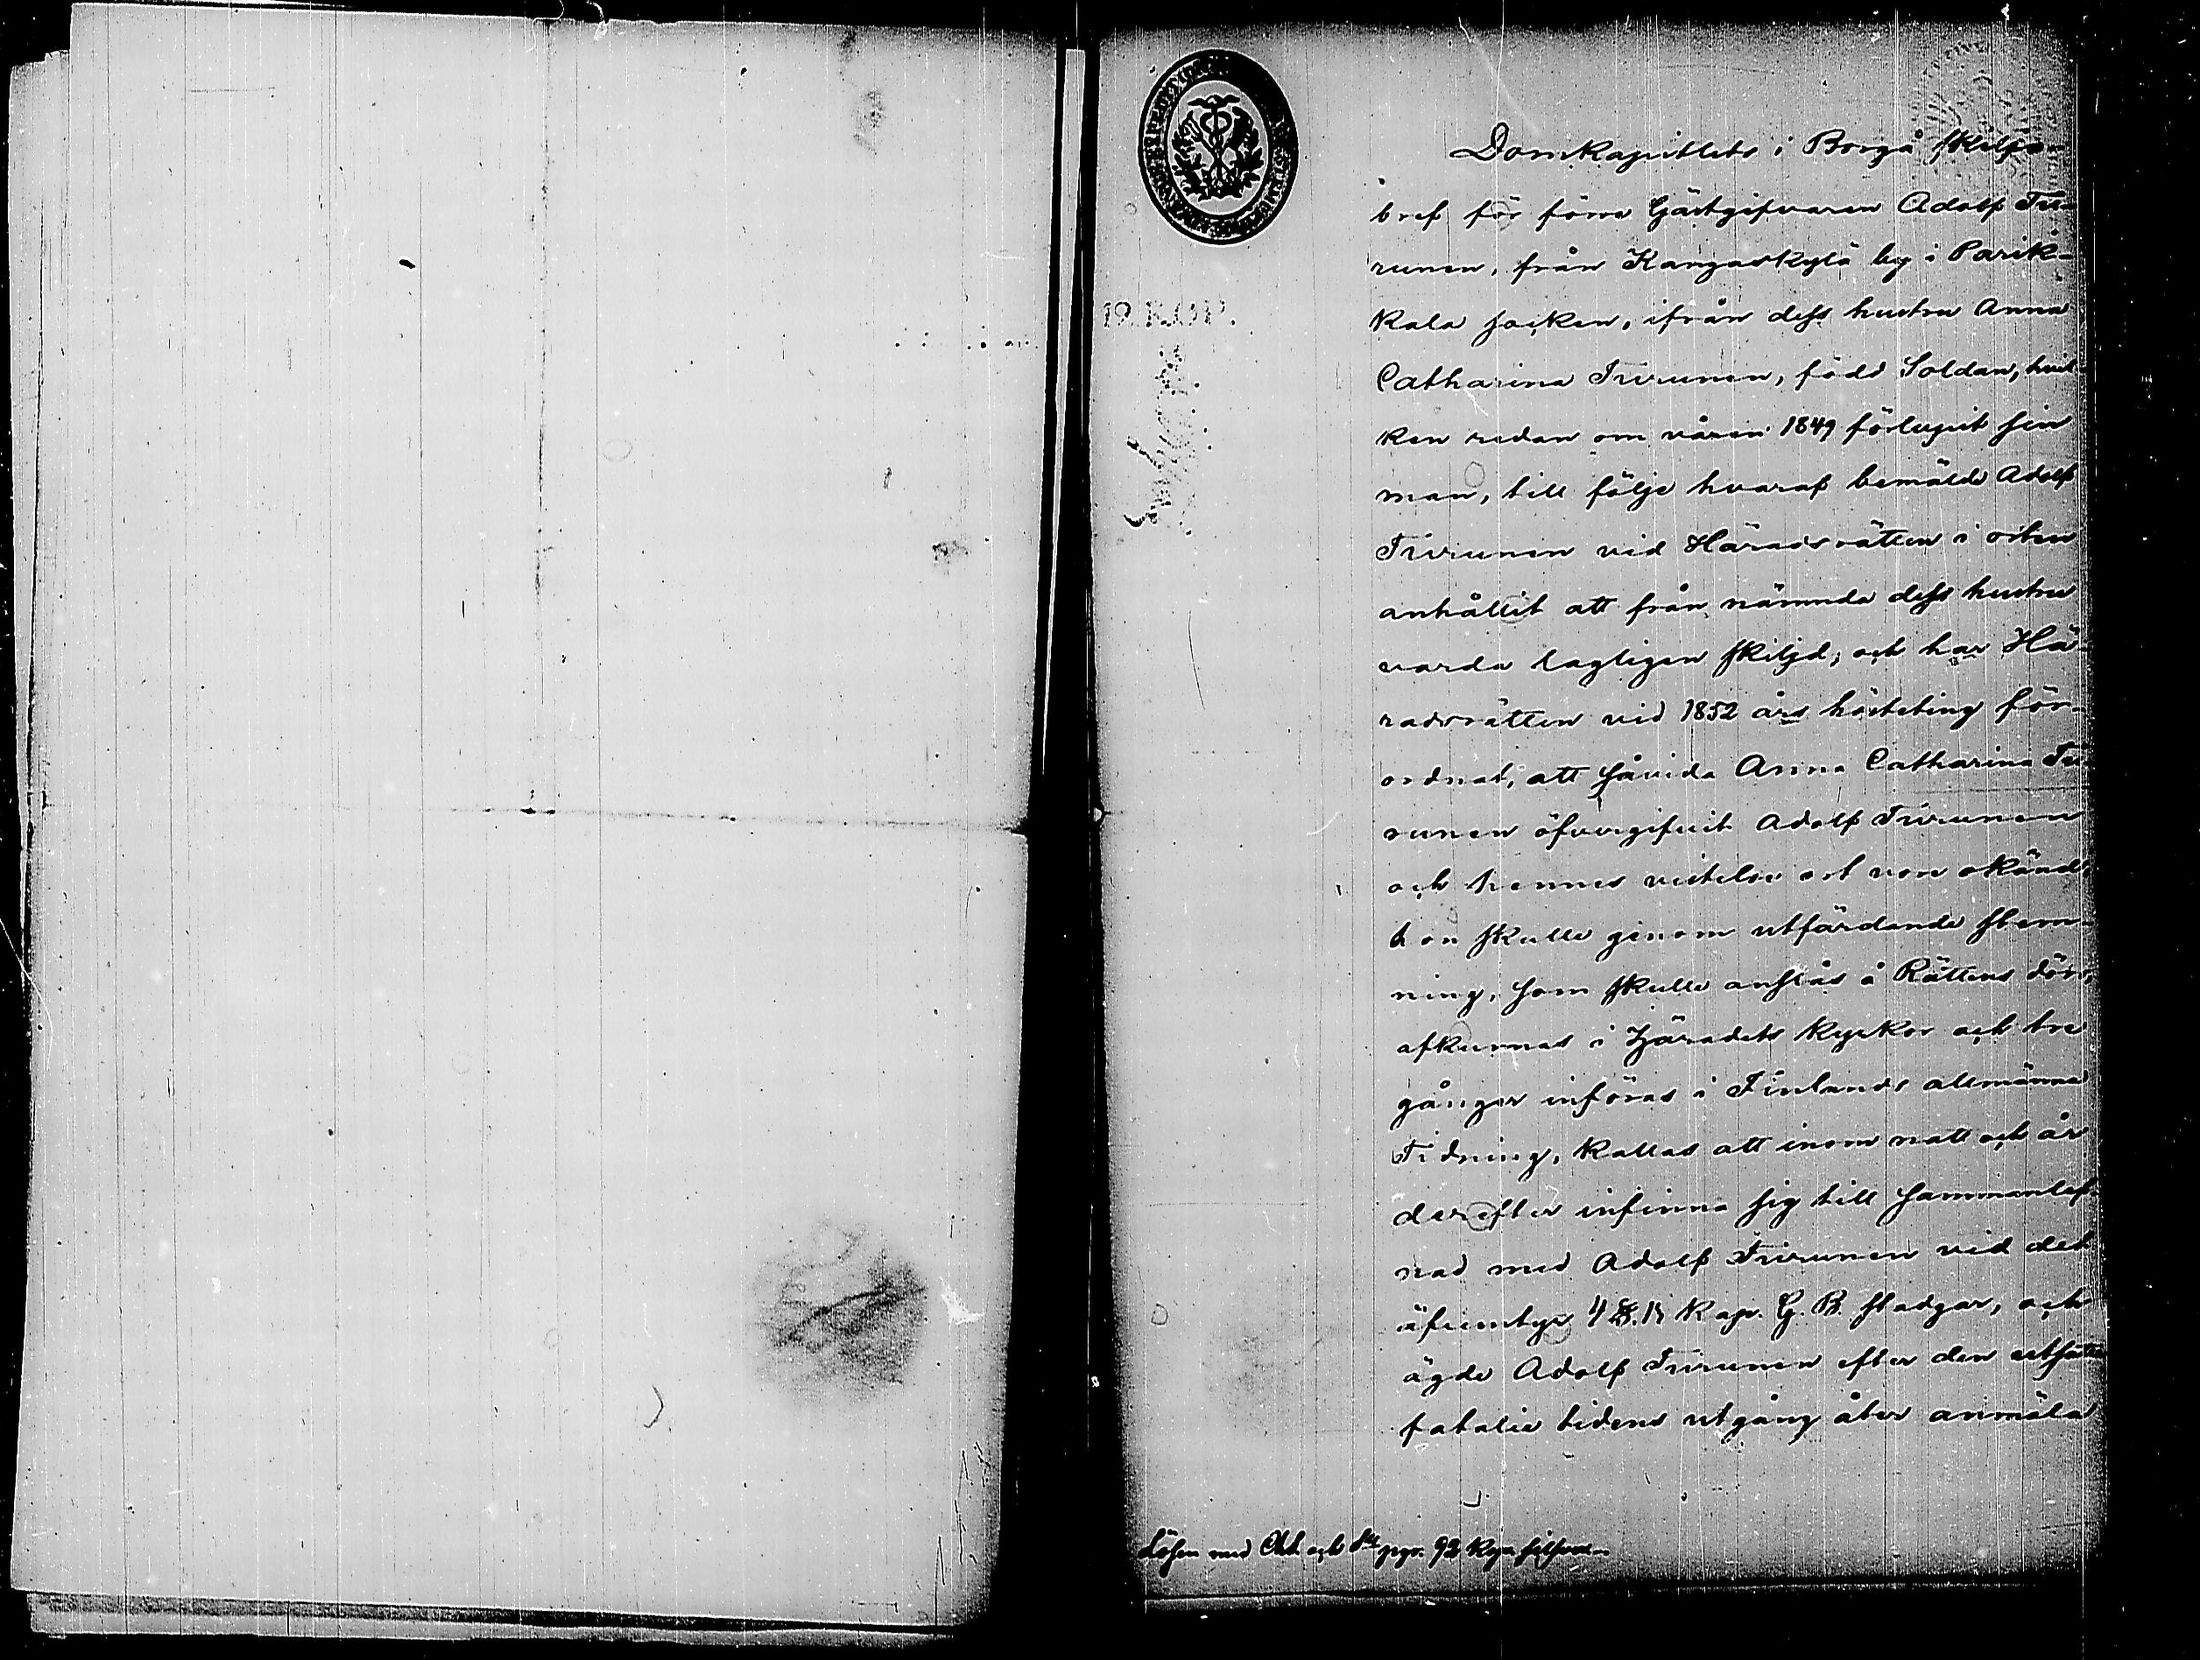 Domkapitlets i Borgå skilsо-
bref för förra Gästgifvaren Adolf Tii-
runen, från Kangaskylä by i Parik-
kala socken, ifrån dess hustru Anna
Catharina Tiirunen, född Soldan, hvil
ken redan om våren 1849 förlupit sin
man, till följe hvaraf bemälde Adolf
Tiirunen vid Häradsrätten i orten
anhållit att från nämnda dess hustru
varda lagligen skiljd; och har Hä-
radsrätten vid 1852 års hösteting för-
ordnat, att såvida Anna Catharina Tii-
runen öfvergifvit Adolf Tiirunen
och hennes vistelse ort vore okänd,
hon skulle genom utfärdande stem
ning, som skulle anslås å Rättens dörr,
afkunnas i Häradets kyrkor och tre
gånger införas i Finlands allmänna
Tidning, kallas att inom natt och år
derefter infinna sig till sammanlef
nad med Adolf Tiirunen vid det
äfventyr 4 §. 13 Kap. G. B. stadgar, och
ägde Adolf Tiirunen efter den utsatta
fatalie tidens utgång åter anmäla
Lösen med och pgr. 92 Kop. silfver
19. КОП.